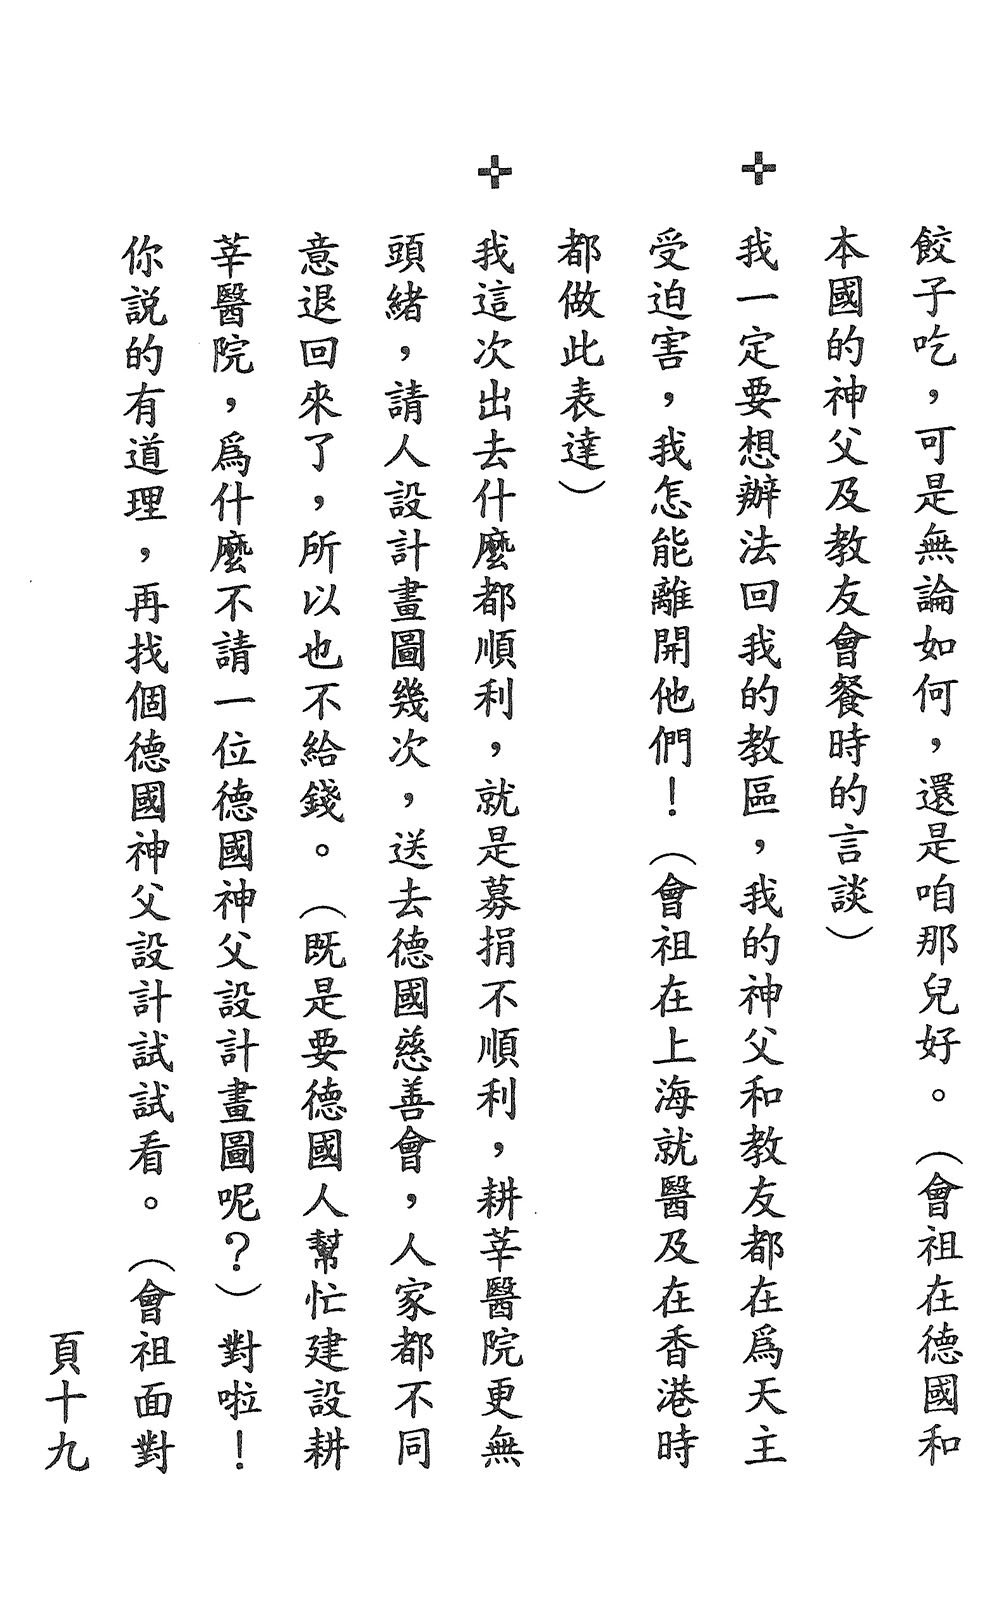 餃子吃，可是無論如何，還是咱那兒好。（會祖在德國和
本國的神父及教友會餐時的言談）
✜我一定要想辦法回我的教區，我的神父和教友都在爲天主
受迫害，我怎能離開他們！（會祖在上海就醫及在香港時
都做此表達）
✜我這次出去什麼都順利，就是募捐不順利，耕莘醫院更無
頭緒，請人設計畫圖幾次，送去德國慈善會，人家都不同
意退回來了，所以也不給錢。（既是要德國人幫忙建設耕
莘醫院，爲什麼不請一位德國神父設計畫圖呢？）對啦！
你說的有道理，再找個德國神父設計試試看。（會祖面對
頁十九